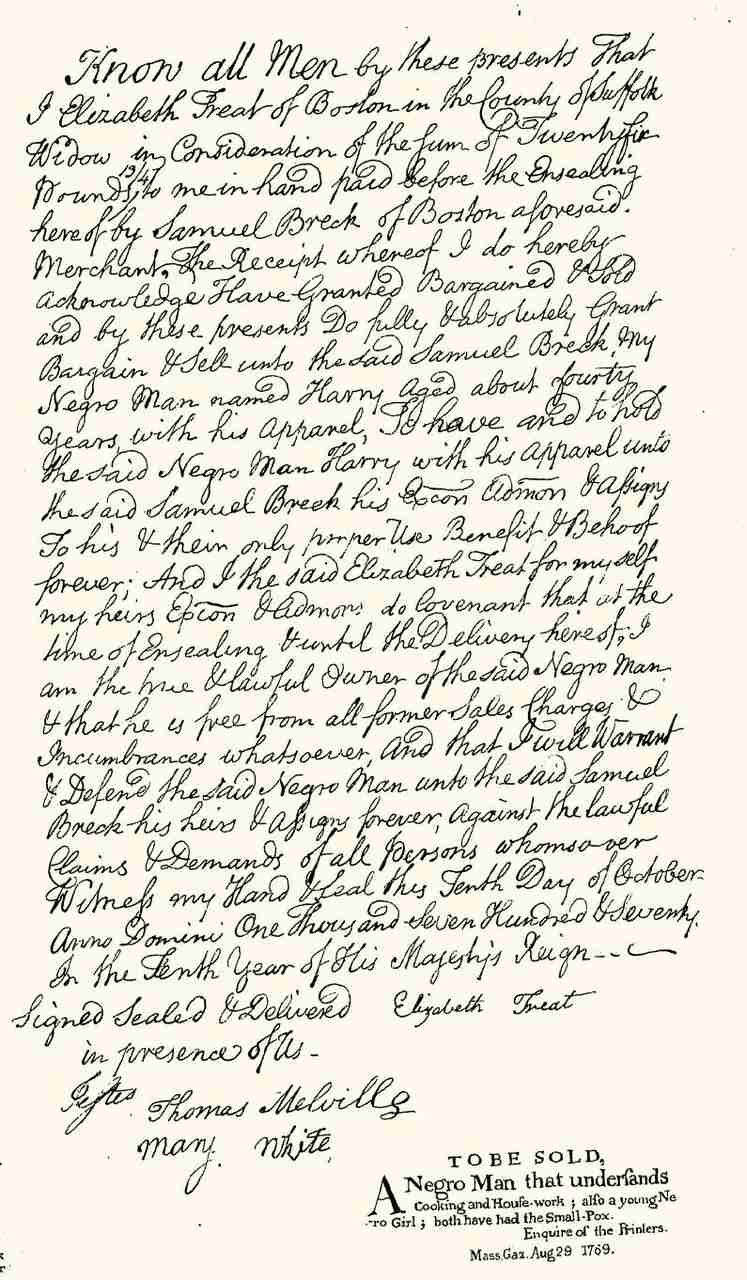 Know all Men by these presents That
I Elizabeth Treat of Boston in the County of Suffolk
Widow in Consideration of the sum of Twentysix
13/4
Pounds, to me in hand paid before the Ensealing
hereof by Samuel Breck of Boston aforesaid.
Merchant, The Receipt whereof I do hereby
acknowledge Have Granted Bargained & Sold
and by these presents Do fully & absolutely Grant
Bargain & Sell unto the said Samuel Breck, My
Negro Man named Harry aged about fourty
years, with his apparel, To have and to hold
the said Negro Man Harry with his apparel unto
the said Samuel Breck his Excon Admon & Assigns
To his & their only proper Use Benefit & Behoof
forever; And I the said Elizabeth Treat for my self
my heirs Excon & Admors do Covenant that at the
time of Ensealing & until the Delivery hereof, I
am the true & lawful Owner of the said Negro Man
& that he is free from all former Sales Charges &
Incumbrances whatsoever, And that I will Warrant
& Defend the said Negro Man unto the said Samuel
Breck his heirs & Assigns forever, Against the lawful
Claims & Demands of all Persons whomsoever
Witness my Hand & Seal this Tenth Day of October
Anno Domini One Thousand Seven Hundred & Seventy.
In the Tenth Year of His Majestys Reign--
Signed Sealed & Delivered Elizabeth Treat
in presence of Us -
Testes Thomas Melvill
Mary White
TO BE SOLD,
A Negro Man that undersands
Cooking and House-work ; also a young Ne
-ro Girl ; both have had the Small-Pox.
Enquire of the Printers.
Mass. Gaz. Aug 29 1769.